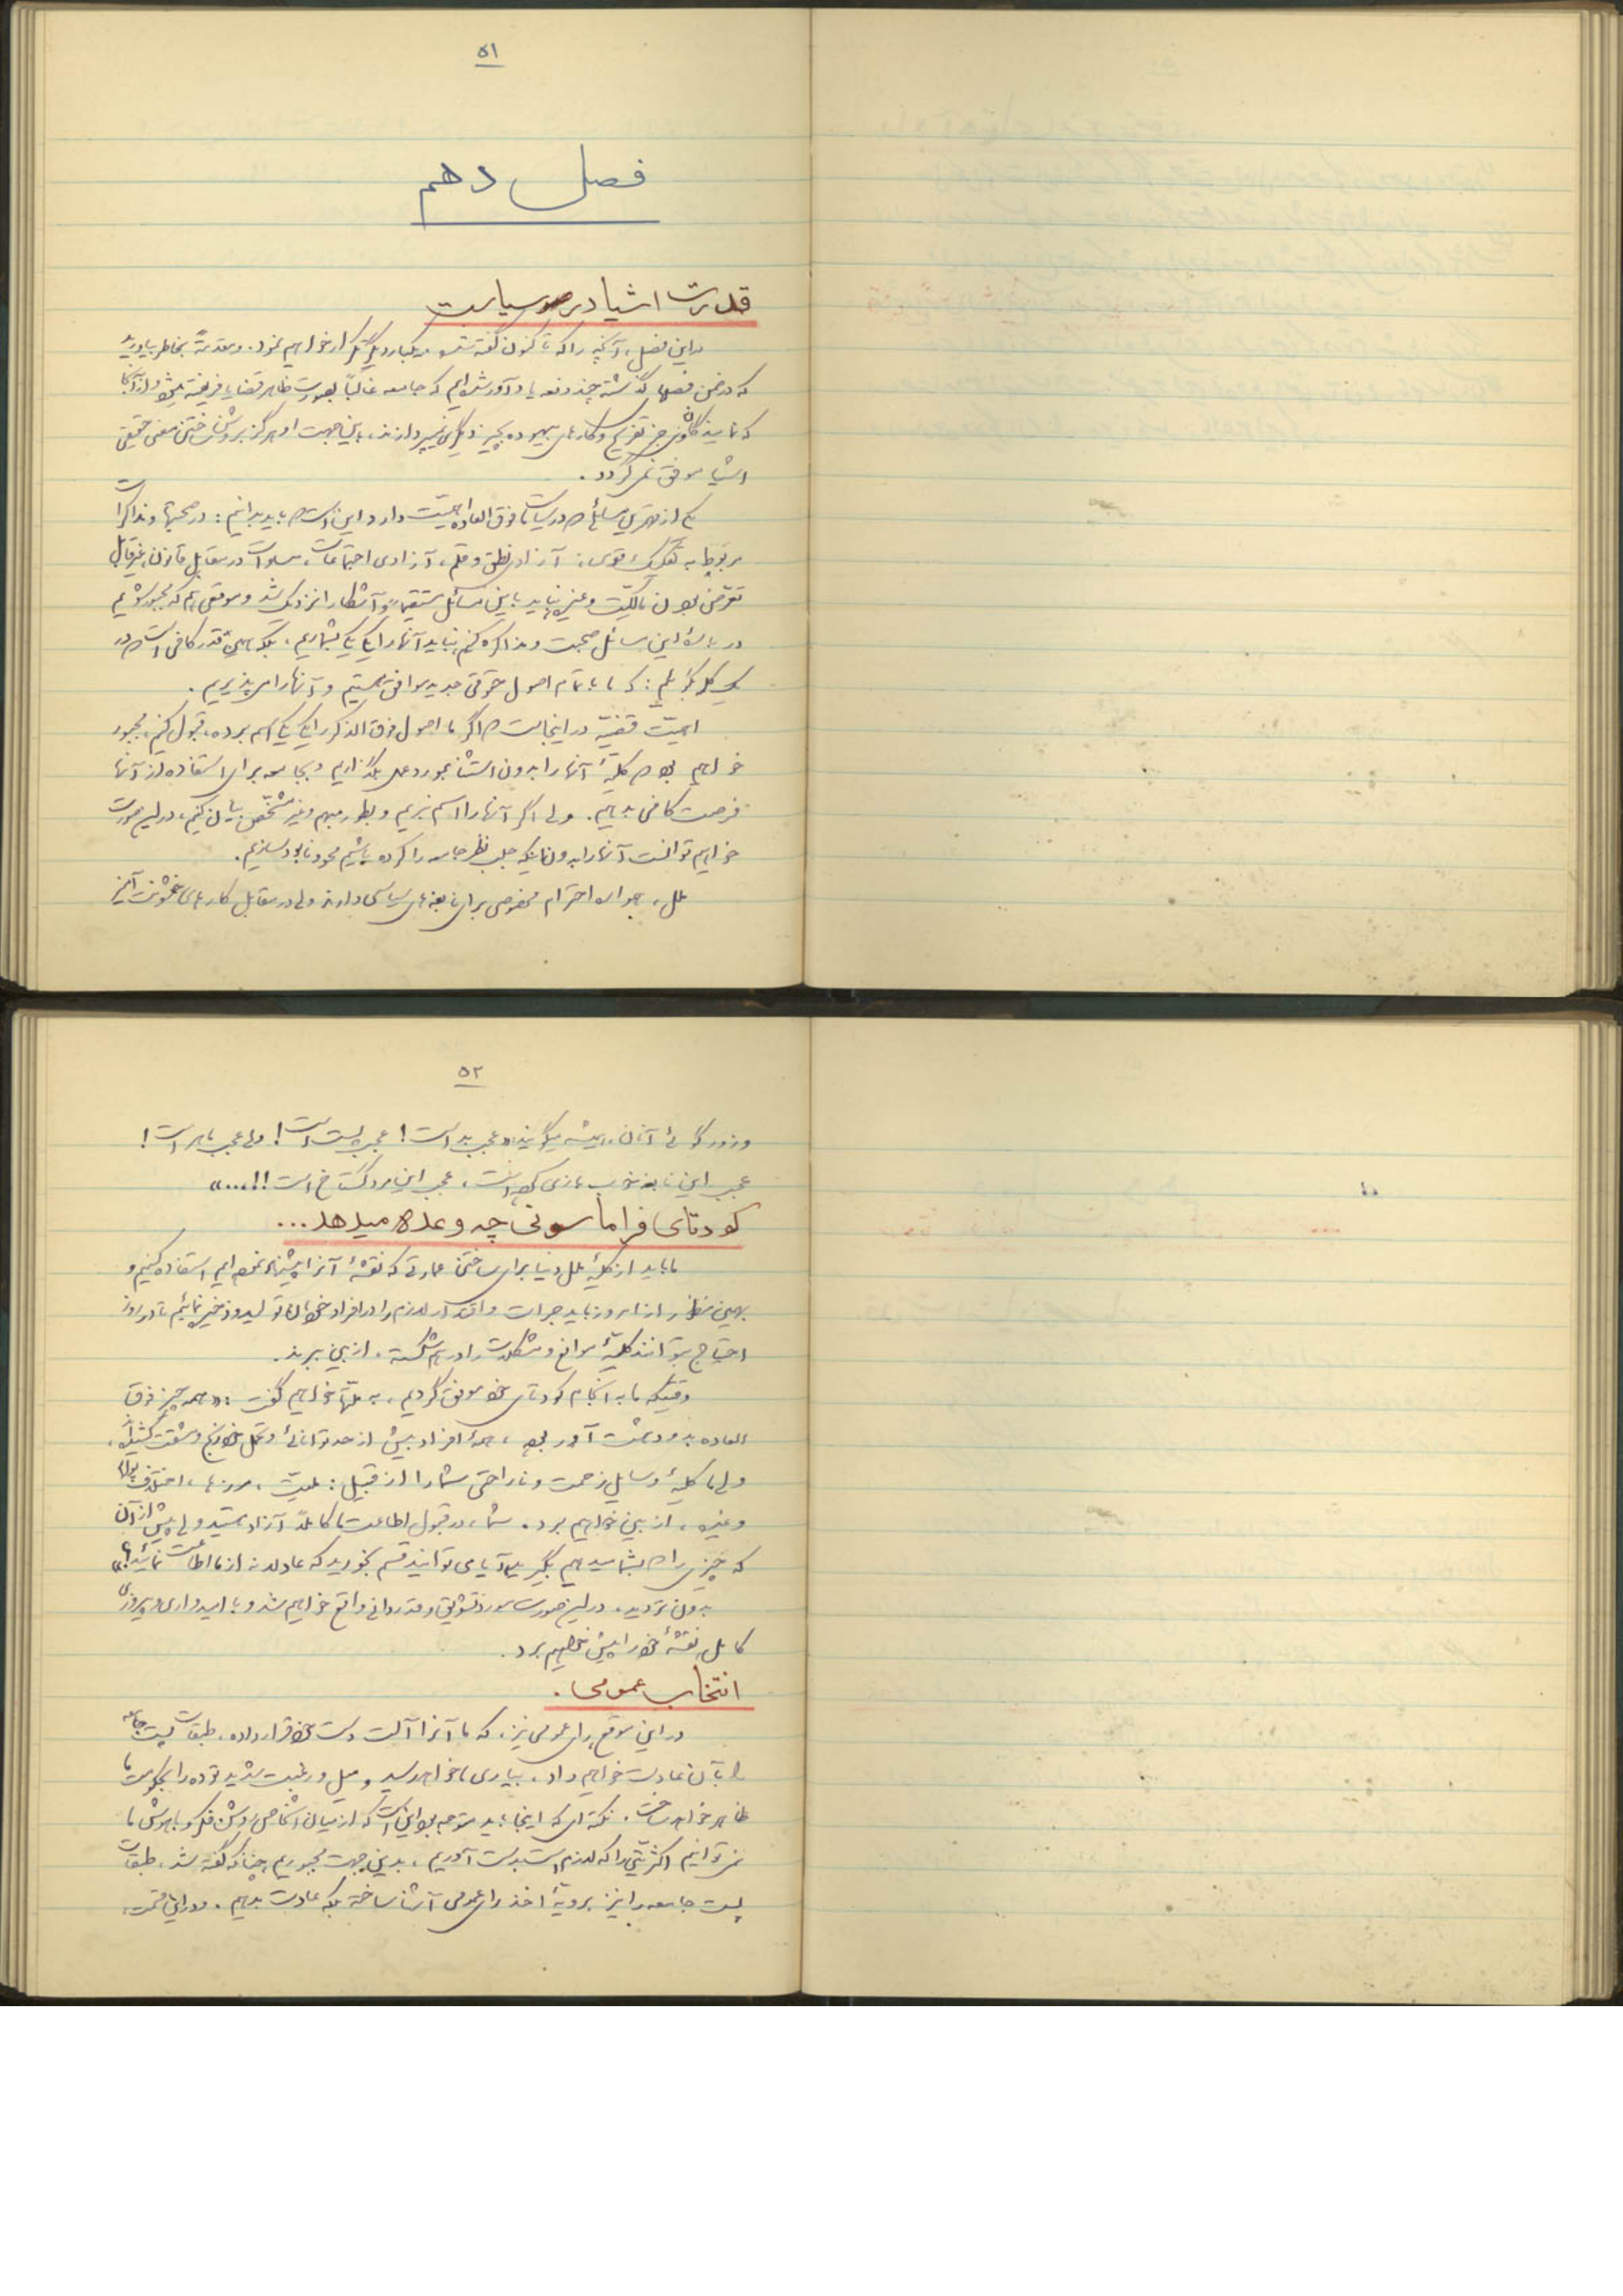 ۵۱
فصل دهم
قدرت اشیا در سیاست
در این فصل، آنچه را که تا کنون گفته شده، یکبار دیگر تکرار خواهیم نمود. و مقدمةً بخاطر بیاورید
که در ضمن فصلهای گذشته چند دفعه یادآور شده‌ایم که جامعه غالباً بصورت ظاهر قضایا فریفته میشود و از آنجا
که نمایندگانش جز تفریح و کارهای بیهوده بچیز دیگری نمیپردازند، باین جهت او هرگز بروشن ساختن معنی حقیقی
اشیا موفق نمی گردد.
یکی از مهمترین مسائلی که در سیاست ما فوق العاده اهمیت دارد این است که باید بدانیم: در صحبتها و مذاکرات
مربوط به تفکیک قوی، آزادی نطق و قلم، آزادی اجتماعات، مساوات در مقابل قانون، غیرقابل
تعرض بودن مالکیت و غیره نباید باین مسائل مستقیماً و آشکارا نزدیک شد و موقعی هم که مجبور شویم
در باره این مسائل صحبت و مذاکره کنیم نباید آنها را یک یک بشماریم، بلکه همین قدر کافی است که در
یک کلمه بگوئیم: که ما با تمام اصول حقوقی جدید موافق هستیم و آنها را می پذیریم.
اهمیت قضیه در اینجاست که اگر ما اصول فوق الذکر را یک یک اسم برده، قبول کنیم، مجبور
خواهیم بود که کلیهٔ آنها را بدون استثنا بمورد عمل بگذاریم و بجامعه برای استفاده از آنها
فرصت کافی بدهیم. ولی اگر آنها را اسم نبریم و بطور مبهم و غیر مشخص بیان کنیم، در این صورت
خواهیم توانست آنها را بدون اینکه جلب نظر جامعه را کرده باشیم محو و نابود سازیم.
ملل، همواره احترام مخصوصی برای نابغه‌های سیاسی دارند ولی در مقابل کارهای خشونت آمیز
۵۲
و زورگوئی آنان، همیشه میگویند: «عجب بد است! عجب پست است! ولی عجب ماهر است!
عجب این نابغه خوب بازی کرده است، عجب این مرد گستاخ است!!....»
کودتای فراماسونی چه وعده میدهد...
ما باید از کلیهٔ ملل دنیا برای ساختن عمارتی که نقشهٔ آنرا پیشنهاد نموده‌ایم استفاده کنیم و
بهمین منظور از امروز باید جرات و اقتدار لازم را در افراد خودمان تولید و ذخیره نمائیم تا در روز
احتیاج بتوانند کلیهٔ موانع و مشکلات را درهم شکسته، از بین ببرند.
وقتیکه ما به انجام کودتای خود موفق گردیم، به ملتها خواهیم گفت: «همه چیز فوق
العاده بد و دهشت آور بود، همهٔ افراد بیش از حد توانائی و تحمل خود رنج و مشقت کشیدند،
ولی ما کلیهٔ وسایل زحمت و ناراحتی شما را از قبیل: ملیت، مرزها، اختلاف پولها
و غیره، از بین خواهیم برد. شما، در قبول اطاعت ما کاملاً آزاد هستید ولی پیش از آن
که چیزی را که بشما میدهیم بگیرید، آیا می توانید قسم بخورید که عادلانه از ما اطاعت نمائید؟»
بدون تردید، در این صورت مورد تشویق و قدردانی واقع خواهیم شد و با امیدواری و پیروزی
کامل نقشهٔ خود را پیش خواهیم برد.
انتخاب عمومی.
در این موقع رای عمومی نیز، که ما آنرا آلت دست خود قرار داده، طبقات پست جامعه
را بآن عادت خواهیم داد، بیاری ما خواهد رسید و میل و رغبت شدید توده را بحکومت ما
ظاهر خواهد ساخت. نکته ای که اینجا باید متوجه بود این است که از میان اشخاص روشن فکر و باهوش ما
نمی توانیم اکثریتی را که لازم است بدست آوریم، بدین جهت مجبوریم چنانکه گفته شد، طبقات
پست جامعه را نیز برویهٔ اخذ رای عمومی آشنا ساخته بلکه عادت بدهیم.